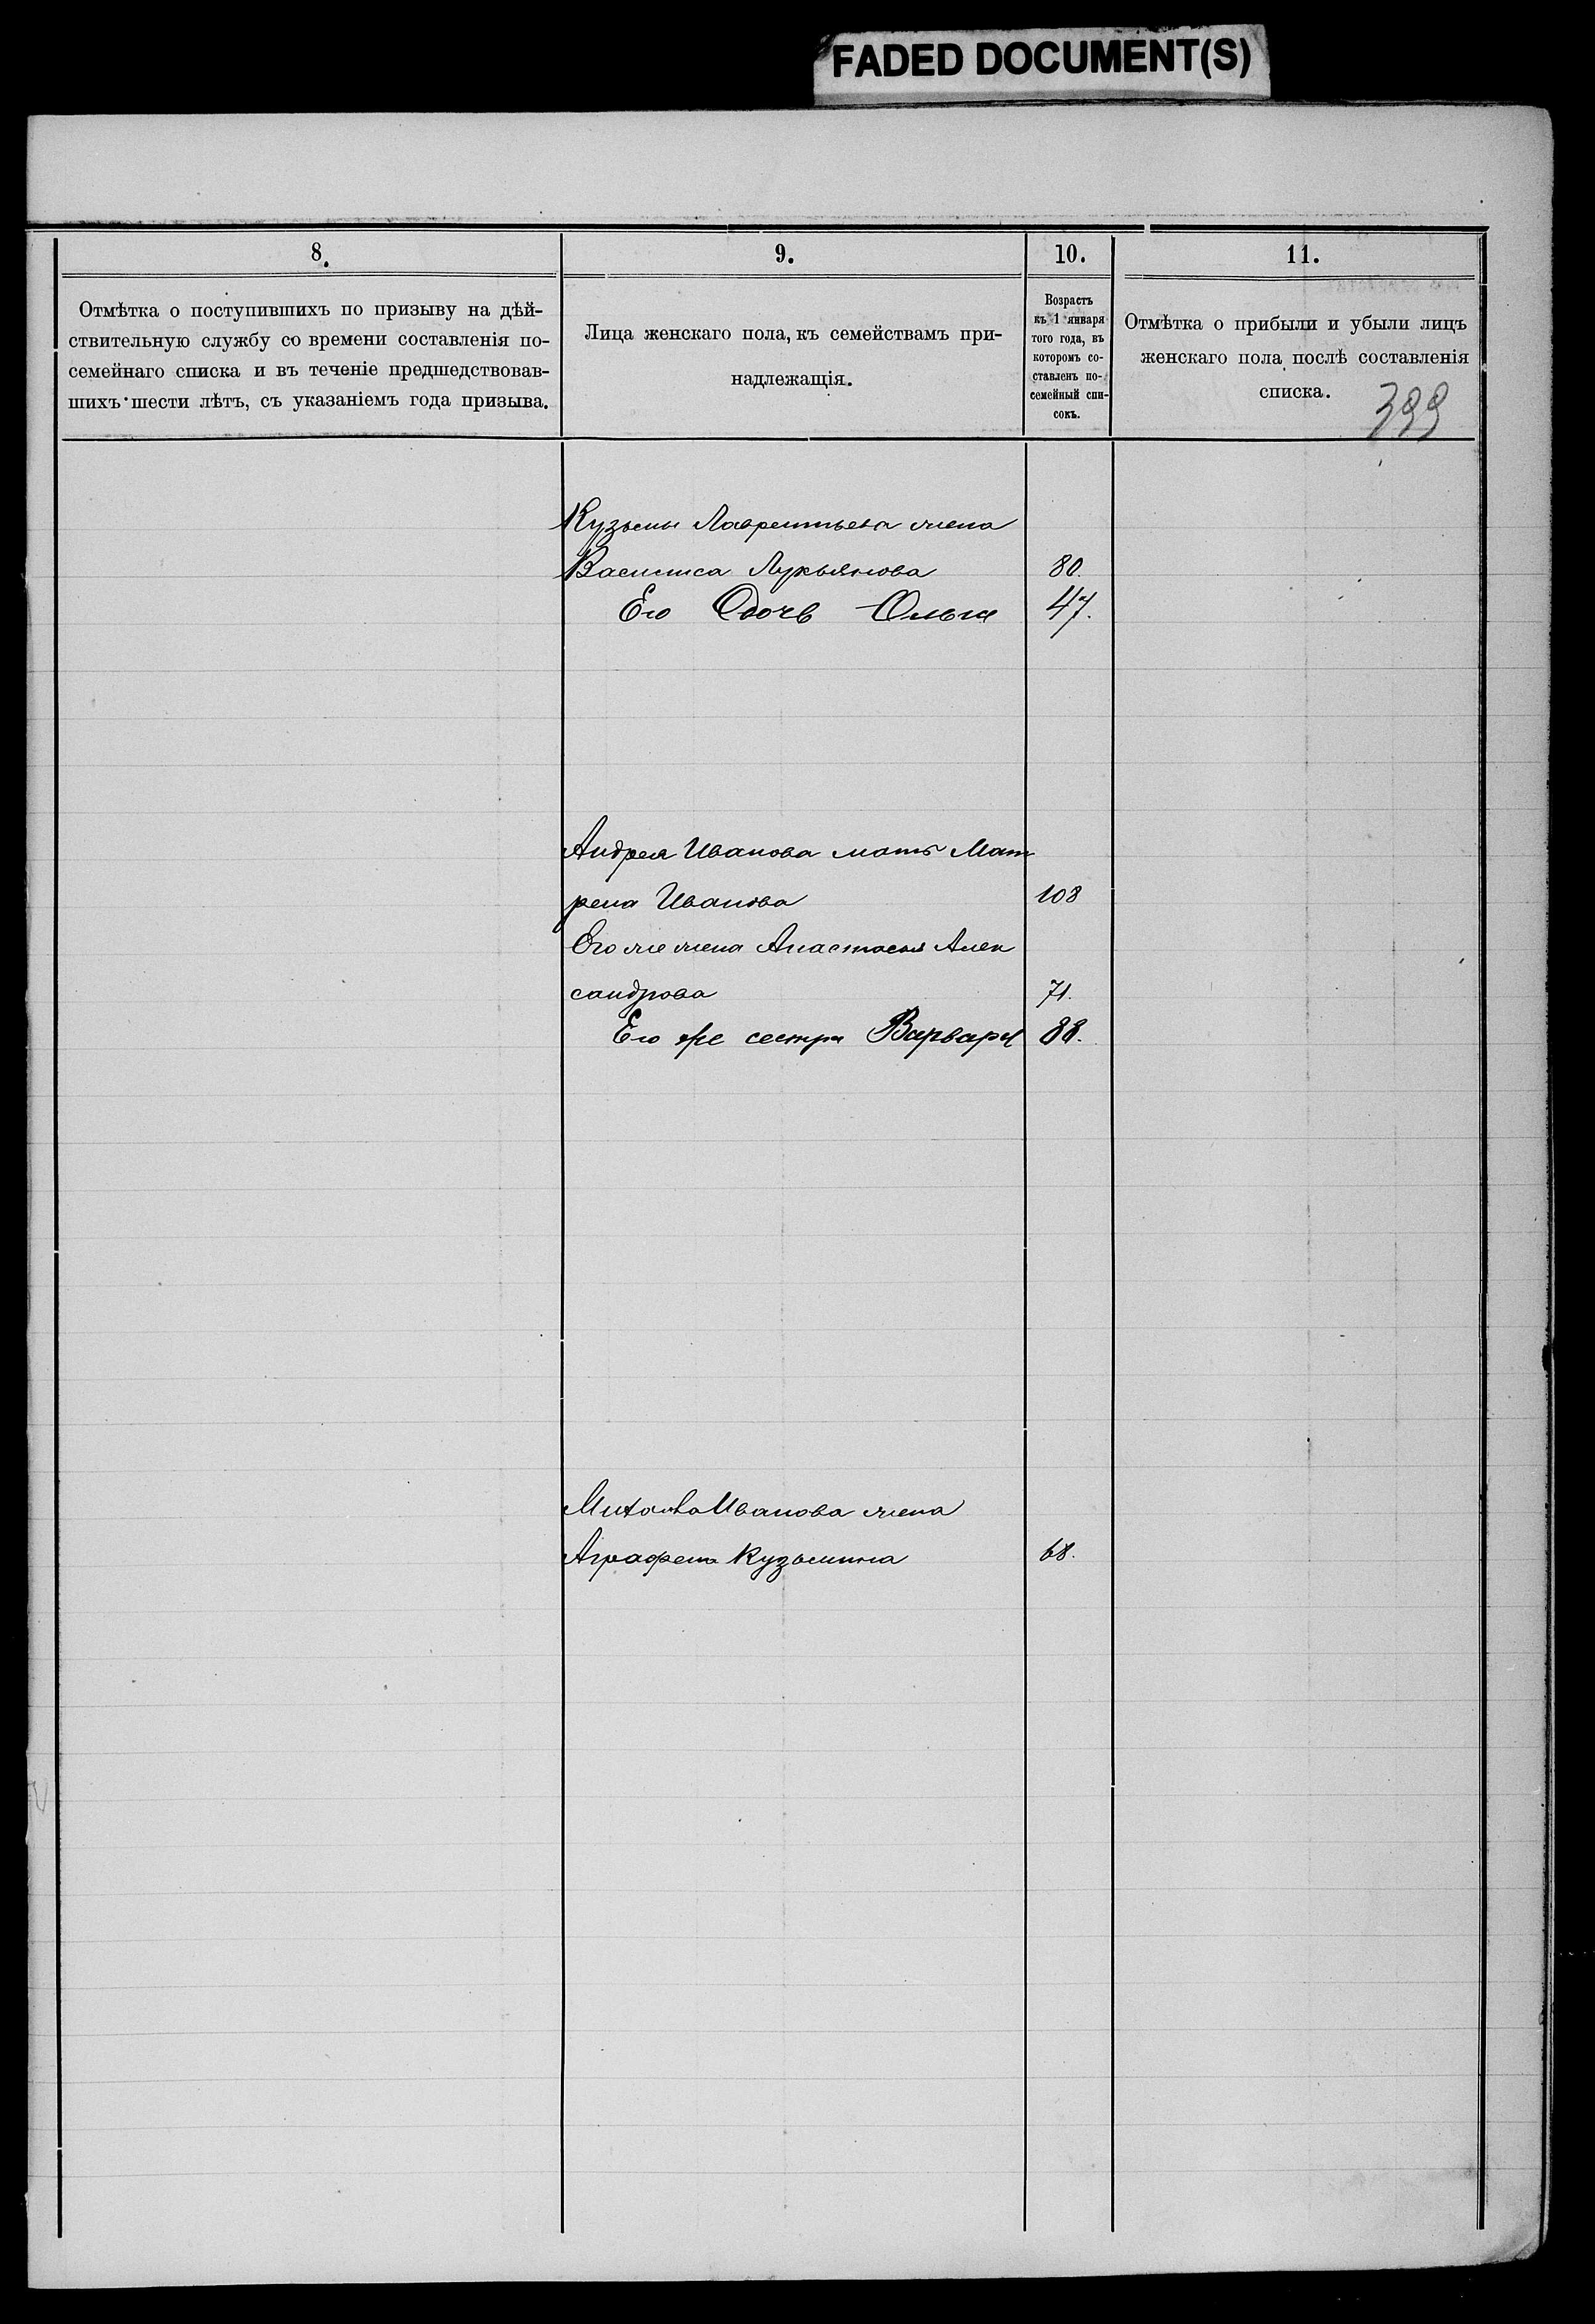 FADED DOCUMENT(S)
8.
9.
10.
11.
Отмѣтка о поступившихъ по призыву на дѣй-
ствительную службу со времени составленія по-
семейнаго списка и въ теченіе предшедствовав-
шихъ шести лѣтъ, съ указаніемъ года призыва.
Лица женскаго пола, къ семействамъ при-
надлежащія.
Возрастъ
къ 1 января
того года, въ
которомъ со-
ставленъ по-
семейный спи-
сокъ.
Отмѣтка о прибыли и убыли лицъ
женскаго пола послѣ составленія
списка.
399
Кузьмы Лаврентьева жена
Василиса Лукьянова 80.
Его дочь Ольга 47.
Андрея Иванова мать Мат
рена Иванова 108
Его же жена Анастасья Алек
сандрова 71.
Его же сестра Варвара 88.
Михаила Иванова жена
Аграфена Кузьмина 68.